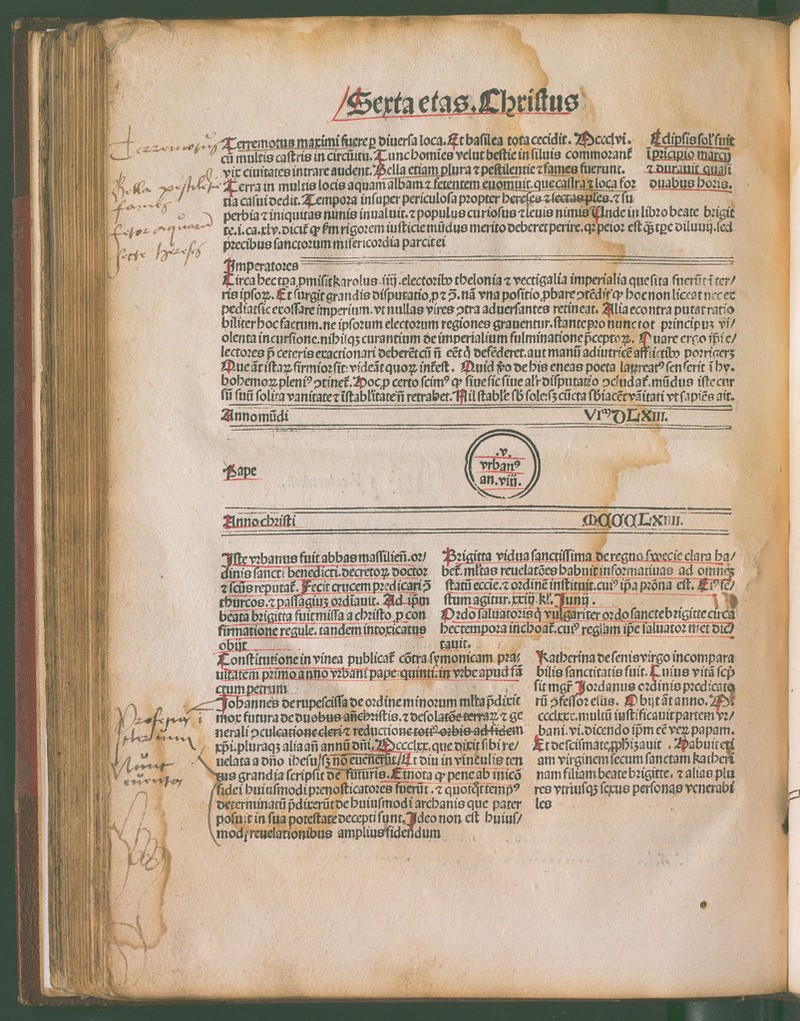 Sexta etas. Christus
Terremotus maximi fuere ꝑ diuersa loca. Et basilea tota cecidit. Mccclvi.
cū multis castris in circūitu. Tunc homies velut bestie in siluis commorant̄
vix ciuitates intrare audent. Bella etiam plura ⁊ pestilentie ⁊ fames fuerunt.
Terra in multis locis aquam albam ⁊ fetentem euomuit. que castra ⁊ loca for
tia casui dedit. Tempora insuper periculosa propter hereses ⁊ sectas ples. ⁊ su
perbia ⁊ iniquitas nimis inualuit. ⁊ populus curiosus ⁊ leuis nimis Unde in libro beate brigit
te. i. ca. xlv. dicit̄ ꝙ ẜm rigorem iusticie mūdus merito deberet perire. qꝛ peior est qͣ̄ tꝑe diluuij. sed
precibus sanctorum misericordia parcit ei
Eclipsis sol' fuit
ī pricipio marcij
⁊ durauit quasi
duabus horis.
Imperatores
Circa hec tꝑa ꝓmisit karolus .iiij. electorib⁹ thelonia ⁊ vectigalia imperialia que sita fuerūt ī ter/
ris ipsoꝝ. Et surgit grandis disputatio, ꝓ ⁊ ꝯ. nā vna positio, ꝓbare ꝯtēdit ꝙ hoc non liceat nec ex
pediat sic excoffare imperium. vt nullas vires ꝯtra aduersantes retineat. Alia econtra putat ratio
biliter hoc factum. ne ipsorum electorum regiones grauentur. stante pro nunc tot principuꝫ vi/
olenta incursione. nihilqꝫ curantium de imperialium fulminatione p̄ceptoꝝ. Quare ergo ip̄i e/
lectores p̄ ceteris exactionari deberēt cū n̄ eēt q̇ defēderet. aut manū adiutricē afflictib⁹ porrigerꝫ
Que āt istaꝝ firmior sit: videāt quoꝝ int̄est. Quid v̄o de his eneas poeta laureat⁹ senserit ī hy.
bohemoꝝ pleni⁹ ꝯtinet̄. Hoc, ꝓ certo scim⁹ ꝙ siue sic siue al'r disputatio ꝯcludat̄. mūdus iste cur
sū suū solita vanitate ⁊ īstabilitate n̄ retrahet. Nil stabile sb̄ sole: sꝫ cūcta sb̄iacēt vāitati vt sapiēs ait.
Anno mūdi VIᵐ DLXIII.
Pape
.v.
vrban⁹
an. viij.
Anno christi MCCCLXIIII.
Iste vrbanus fuit abbas massilien̄. or/
dinis sancti benedicti. decretoꝝ doctor
⁊ sc̄us reputat̄. Fecit crucem predicari ꝯ
thurcos. ⁊ passagiuꝫ ordiauit. Ad ip̄m
beata brigitta fuit missa a christo, ꝓ con
firmatione regule. tandem intoxicatus
obijt
Constitutione in vinea publicat̄ cōtra symonicam pra/
uitatem primo anno vrbani pape quinti. in vrbe apud sā
ctum petrum
Johannes de rupescissa de ordine minorum mlt̄a p̄dixit
mox futura de duobus an̄christis. ⁊ desolatōe terraꝝ ⁊ ge
nerali ꝯculcatione cleri ⁊ reductione toti⁹ orbis ad fidem
xp̄i. pluraqꝫ alia an̄ annū dn̄i. Mccclxx. que dixit sibi re/
uelata a dn̄o ihesu, sꝫ nō euenerūt. At diu in vinculis ten
tus grandia scripsit de futuris. Et nota ꝙ pene ab inicio
fidei huiusmodi prenosticatores fuerūt. ⁊ quotq̇t temp⁹
determinatū p̄dixerūt de huiusmodi archanis que pater
posuit in sua potestate decepti sunt. Ideo non est huius/
modj reuelationibus amplius fidendum
Brigitta vidua sanctissima de regno swecie clara ha/
bet̄. ml̄tas reuelatōes habuit informatiuas ad omnēꝫ
statū eccie. ⁊ ordinē instituit. cui⁹ ip̄a p̄ōna est. Ei⁹ fe/
stum agitur. xxiij. kl̄. Junij.
Ordo saluatoris q̇ vulgariter ordo sancte brigitte circa
hec tempora inchoat̄. cui⁹ regl̄am ip̄e saluator met dic
tauit.
Katherina de senis virgo incompara
bilis sanctitatis fuit. Cuius vitā scp̄
sit mgr̄ Jordanus ordinis predicato
rū ꝯfessor eius. Obijt āt anno. M
ccclxxx. multū iustificauit partem vr/
bani. vi. dicendo ip̄m eē veꝝ papam.
Et de scismate, ꝓphīzauit. Habuit eti
am virginem secum sanctam katheri
nam filiam beate brigitte. ⁊ alias plu
res vtriusqꝫ sexus personas venerabi
les
Terremotus
Bella pestile
fames
fetor aquarum
secte hereses